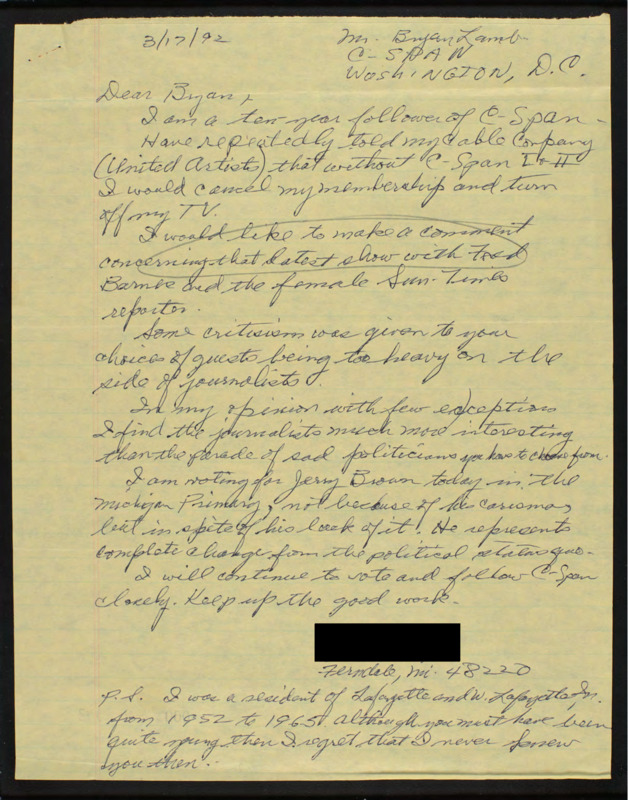 3/17/92
Mr. Bryan Lamb
C-SPAN
WASHINGTON, D.C.
Dear Bryan,
I am a ten year follower of C-Span -
Have repeatedly told my Cable Company
(United Artists) that without C-Span I & II
I would cancel my membership and turn
off my TV.
I would like to make a comment
concerning that latest show with Fred
Barnes and the female Sun-Times
reporter.
Some critisism was given to your
choices of guests being too heavy on the
side of journalists.
In my opinion with few exceptions
I find the journalists much more interesting
than the parade of sad politicians you have to choose from.
I am voting for Jerry Brown today in the
Michigan Primary, not because of his carisma,
but in spite of his lack of it. He represents
complete change from the political status quo.
I will continue to vote and follow C-Span
closely. Keep up the good work.
Ferndale, Mi. 48220
P.S. I was a resident of Lafayette and W. Lafayette, In.
from 1952 to 1965. Although you must have been
quite young then I regret that I never knew
you then.